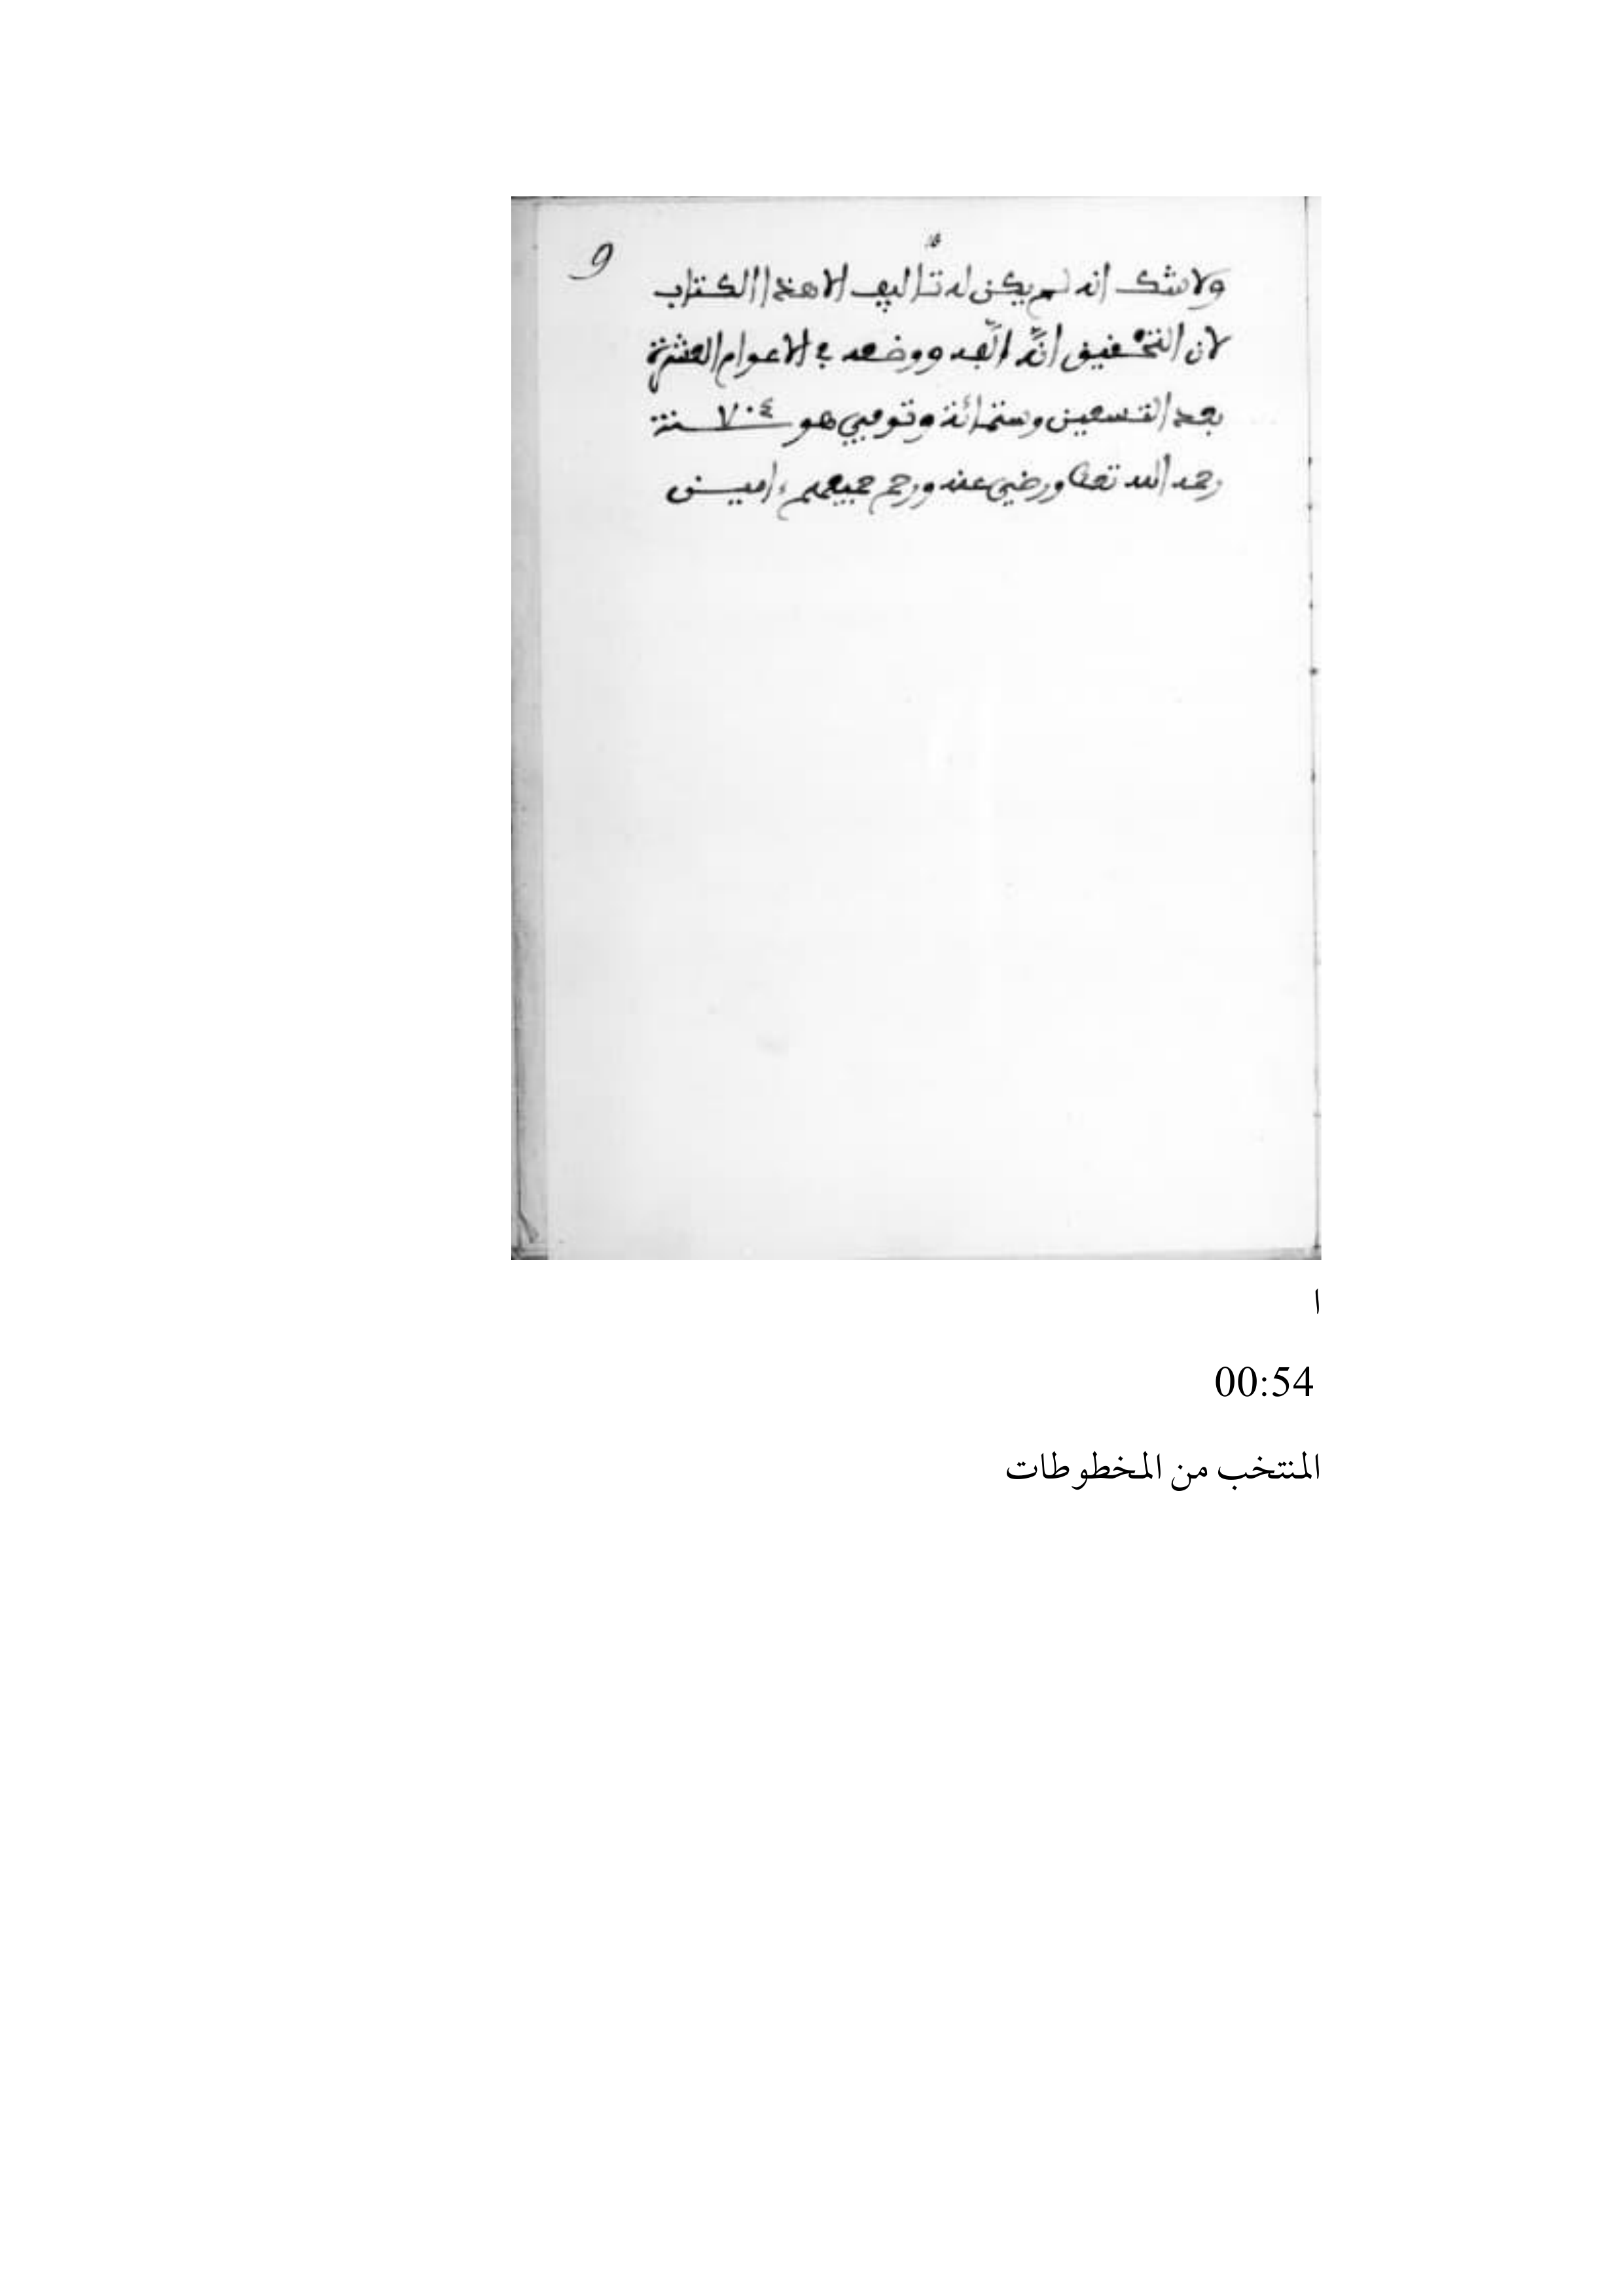 9
ولا شك انه لم يكن له تاليف الا هذا الكتاب
لان التحقيق انَّه الَّفه ووضعه في الاعوام العشرة
بعد التسعين وستمائة وتوفي هو ٧٠٤ سنة
رحمه الله تعلى ورضي عنه ورحم جميعهم ءامين
ا
00:54
المنتخب من المخطوطات